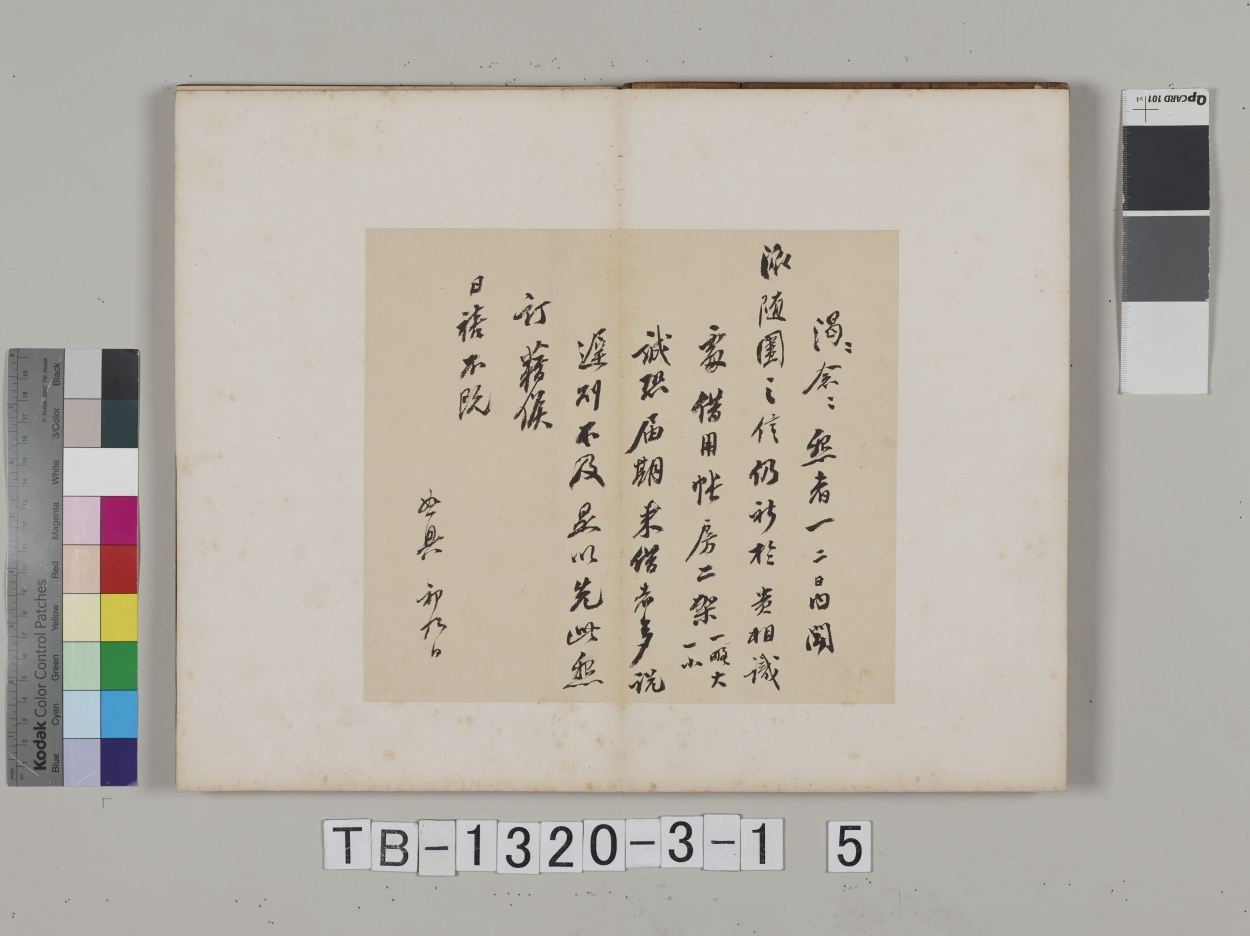 渴〻念〻懇者一二日內聞
派隨圍之信仍祈於貴相識
處借用帳房二架一略大一小
誠恐屆期來借者多說
遲則不及是以先此懇
訂藉候
日禧不既
具 初九日
QpCARD 101 v4
Kodak Color Control Patches
Blue Cyan Green Yellow Red Magenta White 3/Color Black
TB-1320-3-1 5